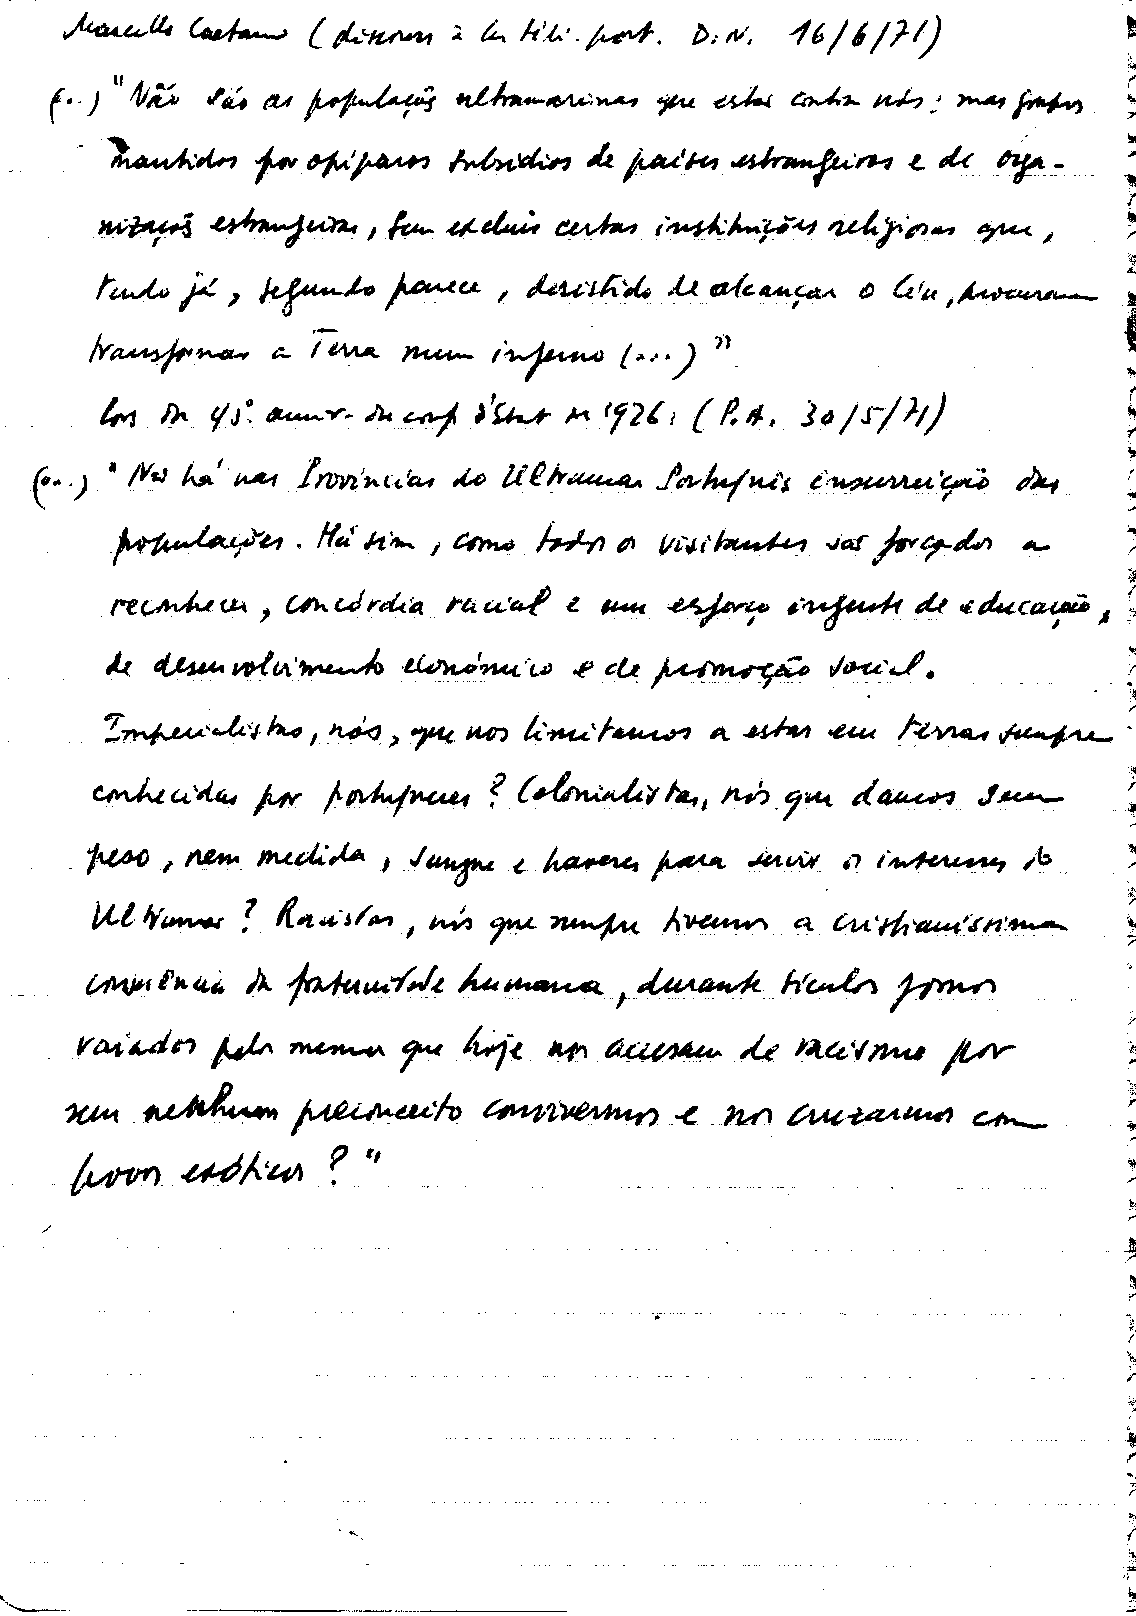 Marcello Caetano (discours à la télé. port. D.N. 16/6/71)
(...) "Não são as populações ultramarinas que estão contra nós: mas grupos
mantidos por opíparos subsídios de países estrangeiros e de orga-
nizações estrangeiras, sem excluir certas instituições religiosas que,
tendo já, segundo parece, desistido de alcançar o Céu, procuram
transformar a Terra num inferno (...)"
Lors du 45º anniv. du coup d'État de 1926: (P.A. 30/5/71)
(...) "Não há nas Províncias do Ultramar Português insurreição das
populações. Há sim, como todos os visitantes são forçados a
reconhecer, concórdia racial e um esforço ingente de educação,
de desenvolvimento económico e de promoção social.
Imperialistas, nós, que nos limitamos a estar em terras sempre
conhecidas por portuguesas? Colonialistas, nós que damos sem
peso, nem medida, sangue e haveres para servir os interesses do
Ultramar? Racistas, nós que sempre tivemos a cristianíssima
consciência da fraternidade humana, durante séculos fomos
vaiados pelos mesmos que hoje nos acusam de racismo por
sem nenhum preconceito convivermos e nos cruzarmos com
povos exóticos?"